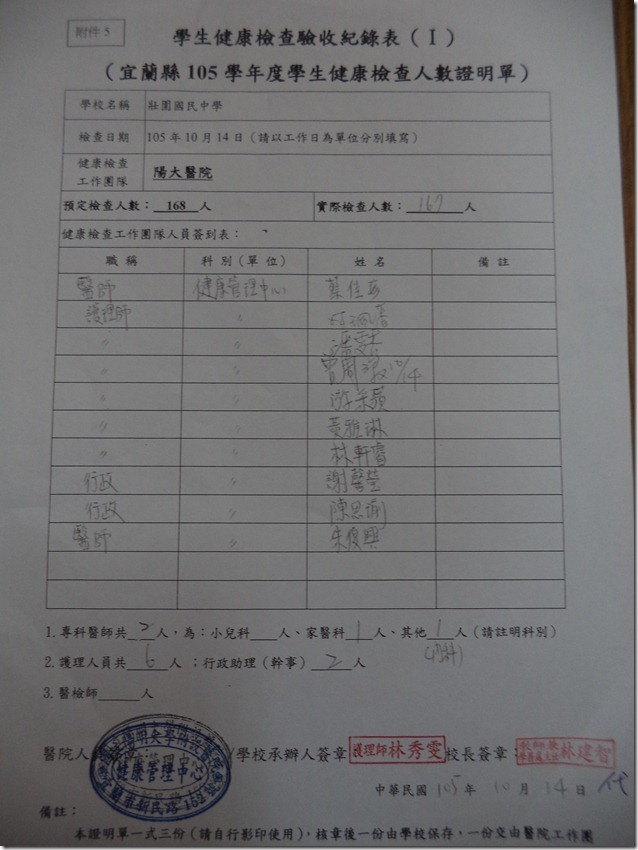 附件 5
學生健康檢查驗收紀錄表（Ⅰ）
（宜蘭縣 105 學年度學生健康檢查人數證明單）
學校名稱 壯圍國民中學
檢查日期 105 年 10 月 14 日（請以工作日為單位分別填寫）
健康檢查
工作團隊 陽大醫院
預定檢查人數： 168 人 實際檢查人數： 167 人
健康檢查工作團隊人員簽到表：
職 稱 科 別（單 位） 姓 名 備 註
醫師 健康管理中心 葉佳
護理師 〃
〃 〃
〃 〃 曾周 10/14
〃 〃 游采蘋
〃 〃 黃雅琳
〃 〃 林軒
行政 〃 謝馨瑩
行政 〃 陳思
醫師 〃 朱俊興
1.專科醫師共 2 人，為：小兒科 人、家醫科 1 人、其他 1 人（請註明科別）
(內科)
2.護理人員共 6 人 ；行政助理（幹事） 2 人
3.醫檢師 人
醫院人 /學校承辦人簽章 護理師林秀雯 校長簽章： 林建智
健康管理中心
中華民國 105 年 10 月 14 日 代
備註：
本證明單一式三份（請自行影印使用），核章後一份由學校保存，一份交由醫院工作團